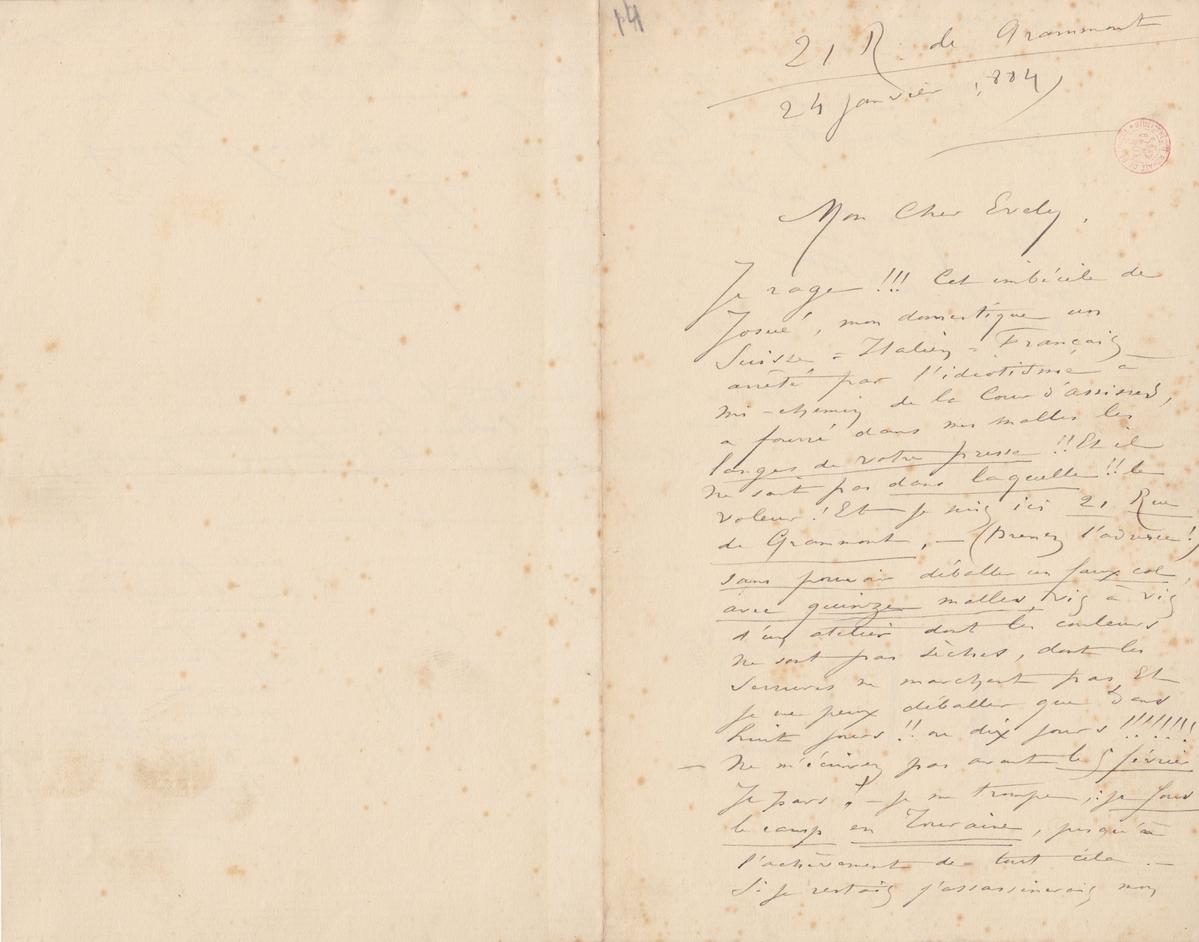 14
21 R. de Grammont
24 janvier 1884
Mon Cher Evely,
Je rage !!! Cet imbécile de
Josué, mon domestique un
Suisse = Italien = Français
arrêté par l'idiotisme à
mi-chemin de la Cour d'assises,
a fourré dans mes malles les
langes de votre presse !! Et il
ne sait pas dans laquelle !! le
voleur ! Et je suis ici 21 Rue
de Grammont, — (Prenez l'adresse !)
sans pouvoir déballer un faux col,
avec quinze malles, vis à vis
d'un atelier dont les couleurs
ne sont pas sèches, dont les
serrures ne marchent pas Et
je ne peux déballer que dans
huit jours !! ou dix jours !!!!!!!
— Ne m'écrivez pas avant le 5 février
Je pars ! — je me trompe ; : je fous
le camp en Touraine, jusqu'à
l'achèvement de tout cela. —
Si je restais j'assassinerais mon